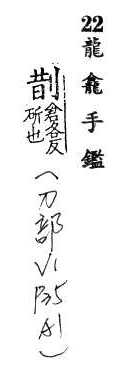 22龍龕手鑑
剒倉各反斫也(刀部V1P35A1)